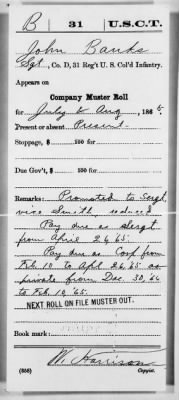 B | 31 | U.S.C.T.
John Banks
Sgt., Co. D, 31 Reg't U. S. Col'd Infantry.
Appears on
Company Muster Roll
for July & Aug, 1865.
Present or absent Present.
Stoppage, $ 100 for
Due Gov't, $ 100 for
Remarks: Promoted to Sergt
vice Smith, reduced
Pay due as Sergt
from April 26 65.
Pay due as Corp from
Feb. 10 to Apl. 26, 65 as
private from Dec. 30, 64
to Feb. 10, 65.
NEXT ROLL ON FILE MUSTER OUT.
Book mark:
W. Harrison
(858) Copyist.